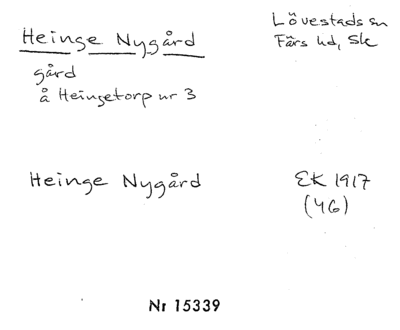 Heinge Nygård
Lövestads sn
Färs hd, Sk
gård
å Heingetorp nr 3
Heinge Nygård
EK 1917
(4G)
Nr 15339